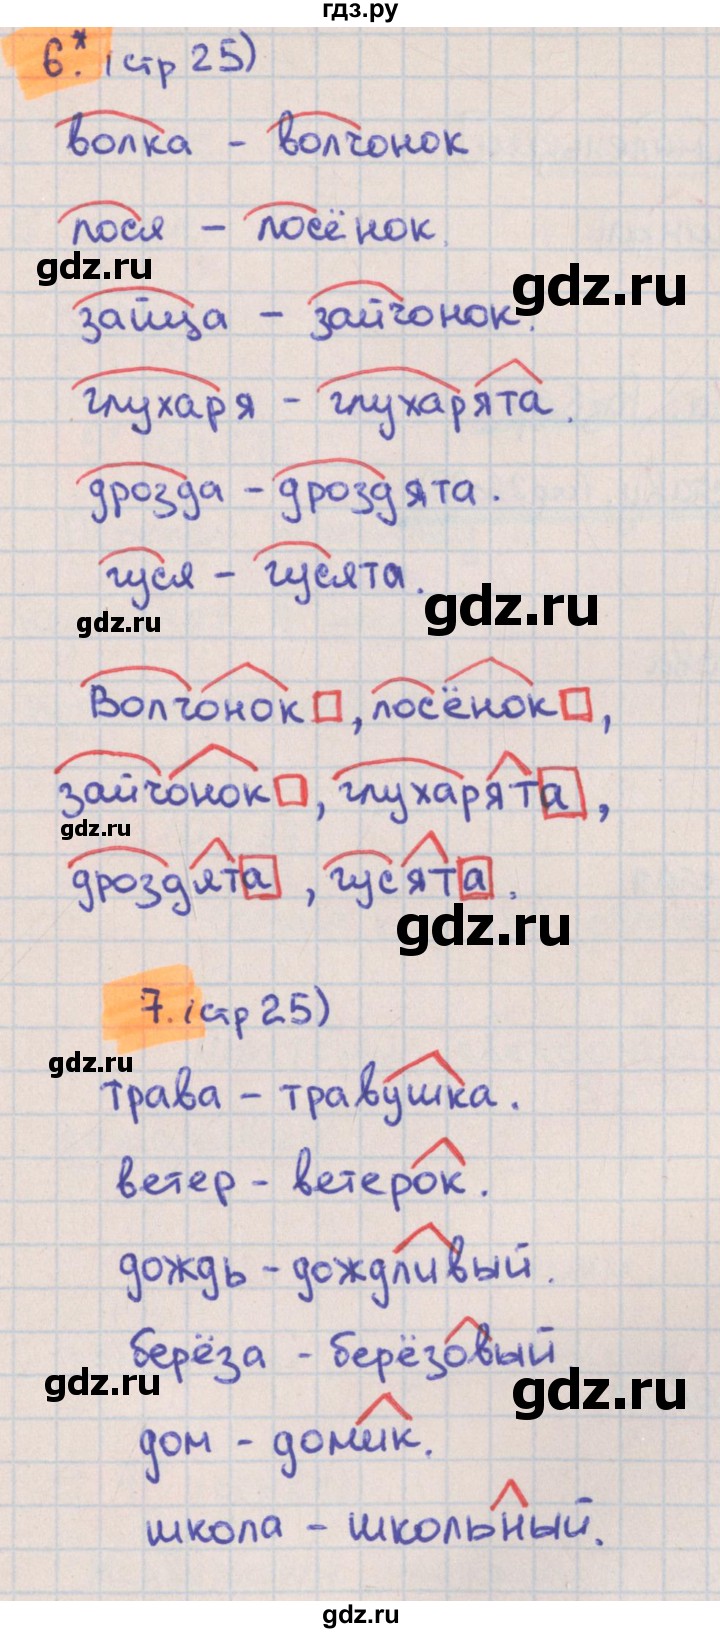 гдз.ру
6.* (стр 25)
волка - волчонок
лося - лосёнок.
gdz.ru
gdz.ru
зайца - зайчонок.
глухаря - глухарята.
дрозда - дроздята.
гуся - гусята.
gdz.ru
gdz.ru
Волчонок, лосёнок,
зайчонок, глухарята,
gdz.ru
дроздята, гусята.
gdz.ru
7. (стр 25)
gdz.ru
трава - травушка.
ветер - ветерок.
дождь - дождливый.
берёза - берёзовый
gdz.ru
gdz.ru
дом - домик.
школа - школьный.
gdz.ru